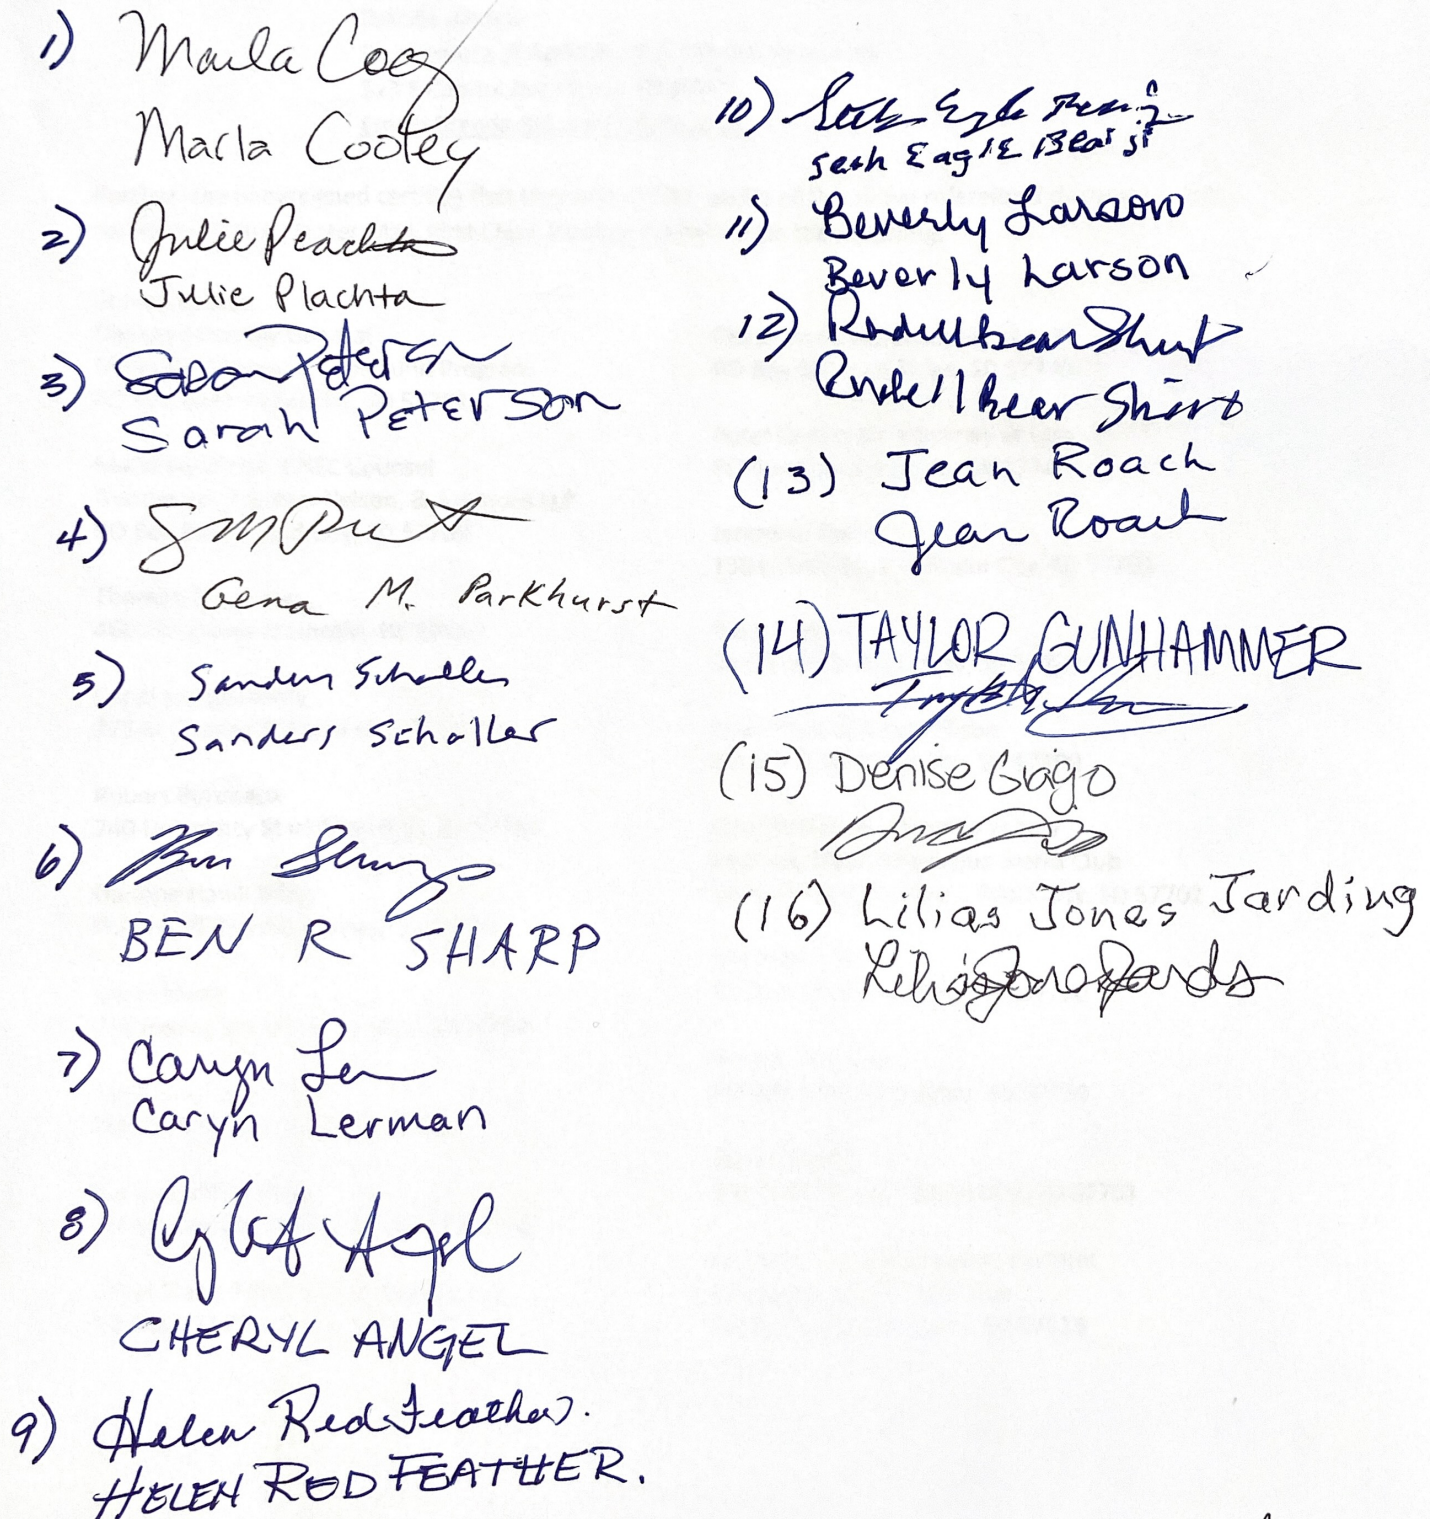 1) Marla Cooley
Marla Cooley
2) Julie Plachta
Julie Plachta
3) Sarah Peterson
Sarah Peterson
4)
Gena M. Parkhurst
5) Sanders Schaller
Sanders Schaller
6) Ben Sharp
BEN R SHARP
7) Caryn Ler
Caryn Lerman
8) Angel
CHERYL ANGEL
9) Helen Red Feather.
HELEN RED FEATHER.
10) Seth Eagle Bear Jr
Seth Eagle Bear Jr
11) Beverly Larson
Beverly Larson
12) Rndell bear Shirt
Rndell bear Shirt
(13) Jean Roach
Jean Roach
(14) TAYLOR GUNHAMMER
(15) Denise Giago
(16) Lilias Jones Jarding
Lilias Jones Jarding